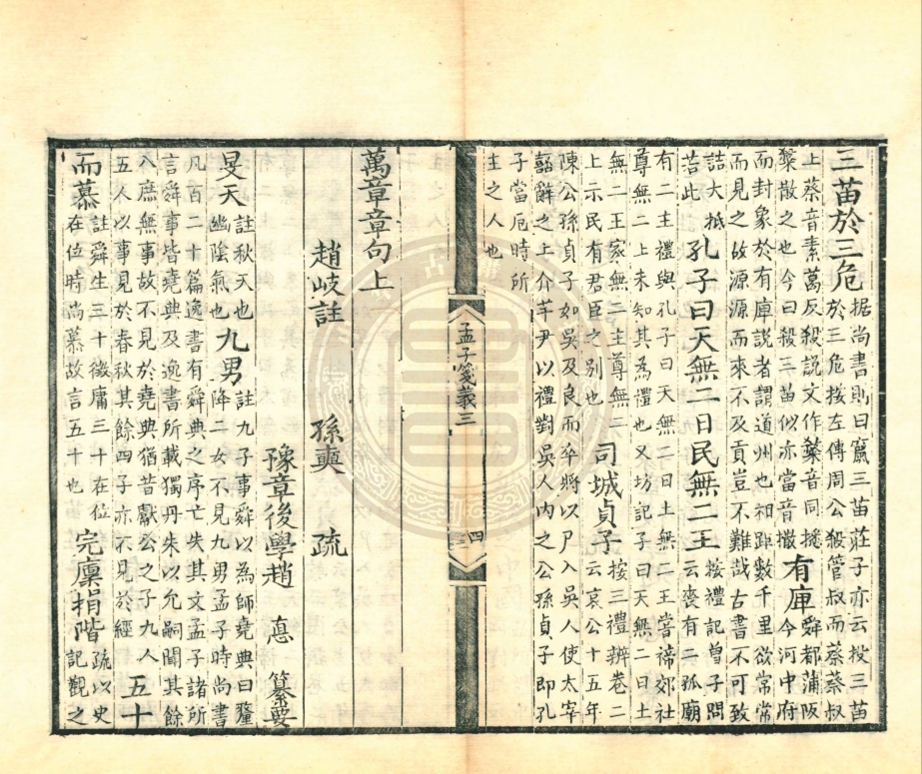 三苗於三危据尚書則曰竄三苗莊子亦云投三苗
於三危按左傳周公殺管叔而蔡蔡叔
上蔡音素葛反殺說文作𥻦音同摋
𥻦散之也今曰殺三苗似亦當音摋
有庳舜都蒲阪
今河中府
而封象於有庳説者謂道州也相距數千里欲常常
而見之故源源而來不及貢豈不難哉古書不可致
詰大抵
若此
孔子曰天無二日民無二王按禮記曾子問
云喪有二孤廟
有二主禮與孔子曰天無二日土無二王嘗禘郊社
尊無二上未知其為禮也又坊記子曰天無二日土
無二王家無二主尊無二
上示民有君臣之别也
司城貞子按三禮辨卷二
云哀公十五年
陳公孫貞子如吳及良而卒將以尸入吳人使太宰
嚭辭之上介芊尹以禮對吳人内之公孫貞子即孔
子當厄時所
主之人也
孟子箋義三
四
萬章章句上
趙岐註 孫奭 疏
豫章後學趙 悳 纂要
旻天註秋天也
幽陰氣也
九男註九子事舜以為師堯典曰釐
降二女不見九男孟子時尚書
凡百二十篇逸書有舜典之序亡失其文孟子諸所
言舜事皆堯典及逸書所載獨丹朱以允嗣聞其餘
八庶無事故不見於堯典猶昔獻公之子九人
五人以事見於春秋其餘四子亦不見於經
五十
而慕註舜生三十徵庸三十在位
在位時尚慕故言五十也
完廩捐階疏以史
記觀之